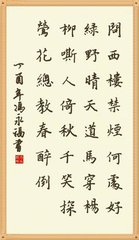 問西樓禁煙何處好
綠野晴天道馬穿楊
柳嘶人倚秋千笑探
鶯花總教春醉倒
丁酉年馮永福書